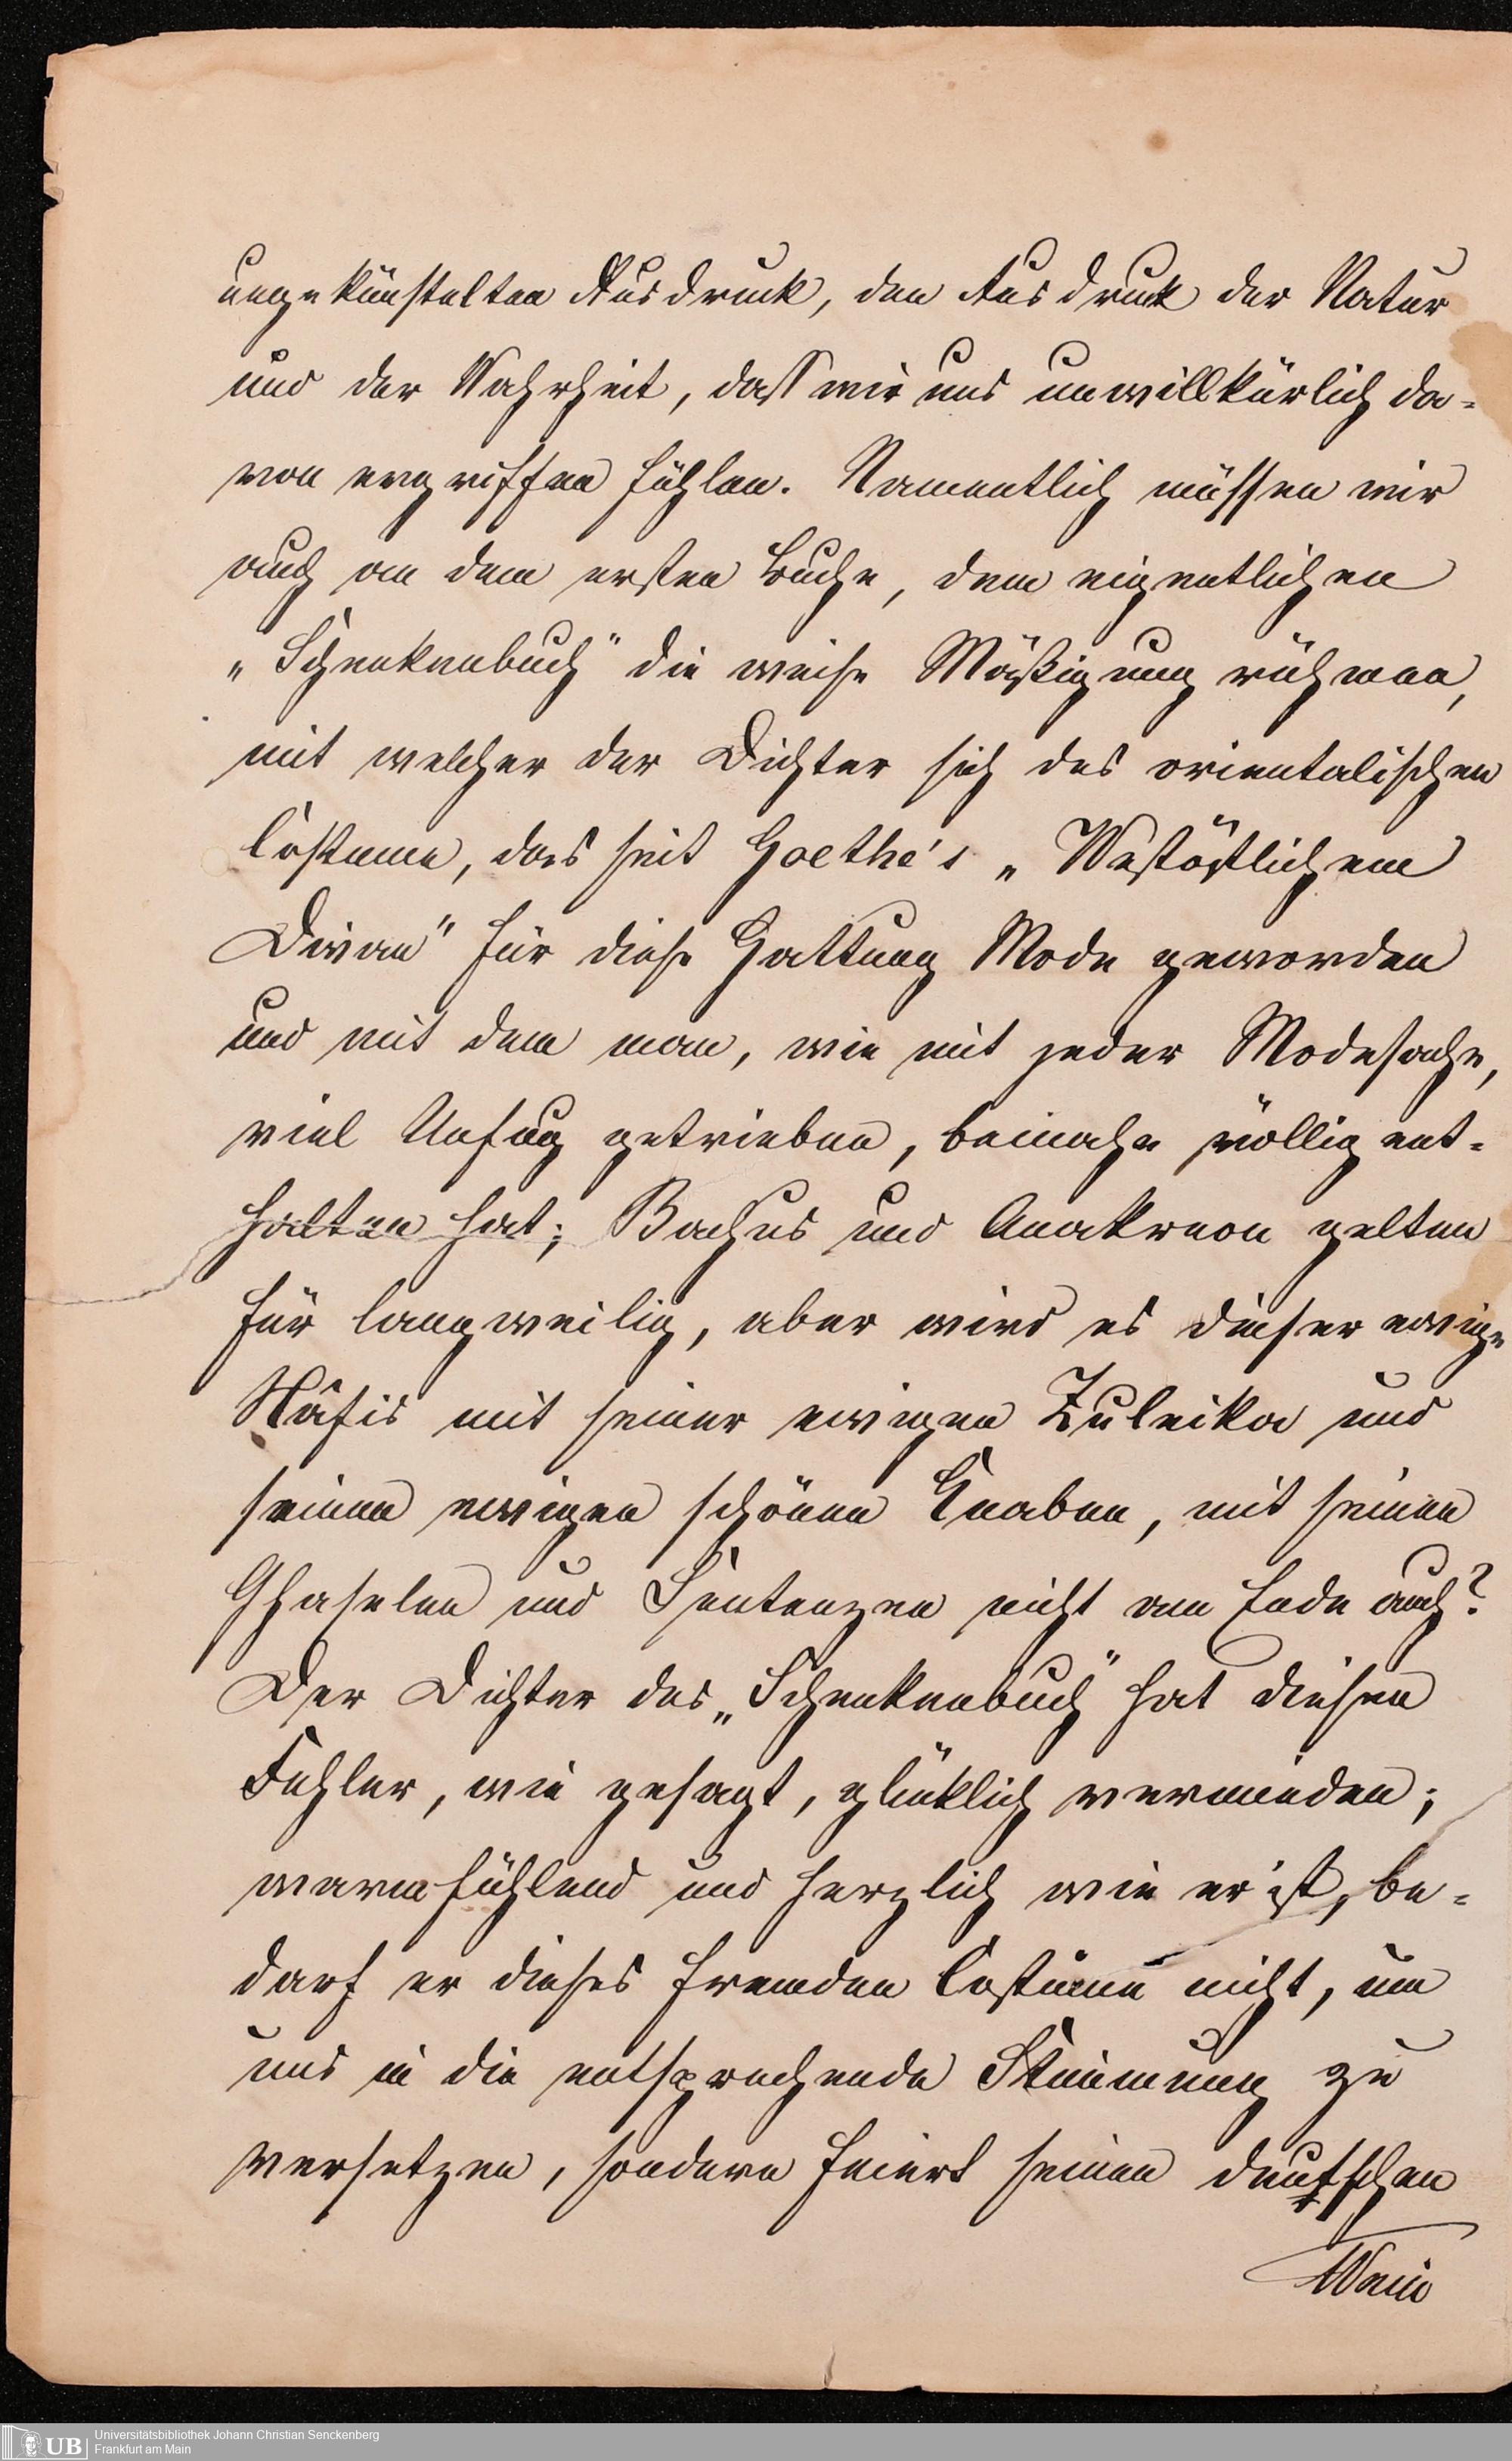 ungekünstelten Ausdruck, den Ausdruck der Natur
und der Wahrheit, dass wir uns unwillkürlich da-
von ergriffen fühlen. Namentlich müssen wir
auch an dem ersten Buche, dem eigentlichen
„Schenkenbuch" die weise Mäßigung rühmen,
mit welcher der Dichter sich des orientalischen
Costumes, das seit Goethe's „Westöstlichem
Divan" für diese Gattung Mode geworden
und mit dem man, wie mit jeder Modesache,
viel Unfug getrieben, beinahe völlig ent-
halten hat; Bachus und Anakreon gelten
für langweilig, aber wird es dieser ewige
Hâfis mit seiner ewigen Zuleika und
seinen ewigen schönen Knaben, mit seinen
Ghaselen und Sentenzen nicht am Ende auch?
Der Dichter des „Schenkenbuch" hat diesen
Fehler, wie gesagt, glücklich vermieden;
warmfühlend und herzlich wie er ist, be-
darf er dieses fremden Costüms nicht, um
uns in die entsprechende Stimmung zu
versetzen, sondern feiert seinen deutschen
Wein
Universitätsbibliothek Johann Christian Senckenberg
UB Frankfurt am Main